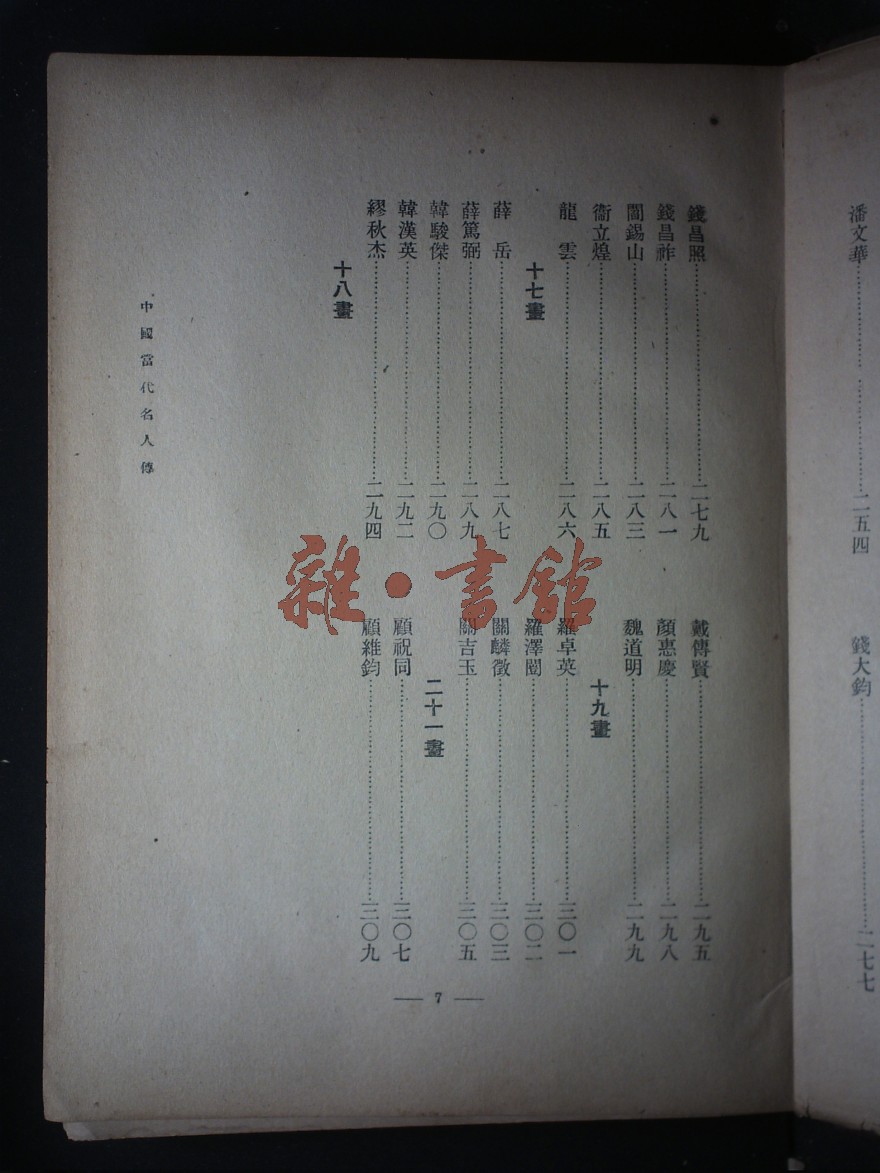 潘文華⋯⋯二五四
錢大鈞⋯⋯二七七
錢昌照⋯⋯二七九
錢昌祚⋯⋯二八一
閻錫山⋯⋯二八三
衞立煌⋯⋯二八五
龍 雲⋯⋯二八六
十七畫
薛 岳⋯⋯二八七
薛篤弼⋯⋯二八九
韓駿傑⋯⋯二九〇
韓漢英⋯⋯二九二
繆秋杰⋯⋯二九四
十八畫
戴傳賢⋯⋯二九五
顏惠慶⋯⋯二九八
魏道明⋯⋯二九九
十九畫
羅卓英⋯⋯三〇一
羅澤闓⋯⋯三〇二
關麟徵⋯⋯三〇三
關吉玉⋯⋯三〇五
二十一畫
顧祝同⋯⋯三〇七
顧維鈞⋯⋯三〇九
中國當代名人傳
— 7 —
雜·書館